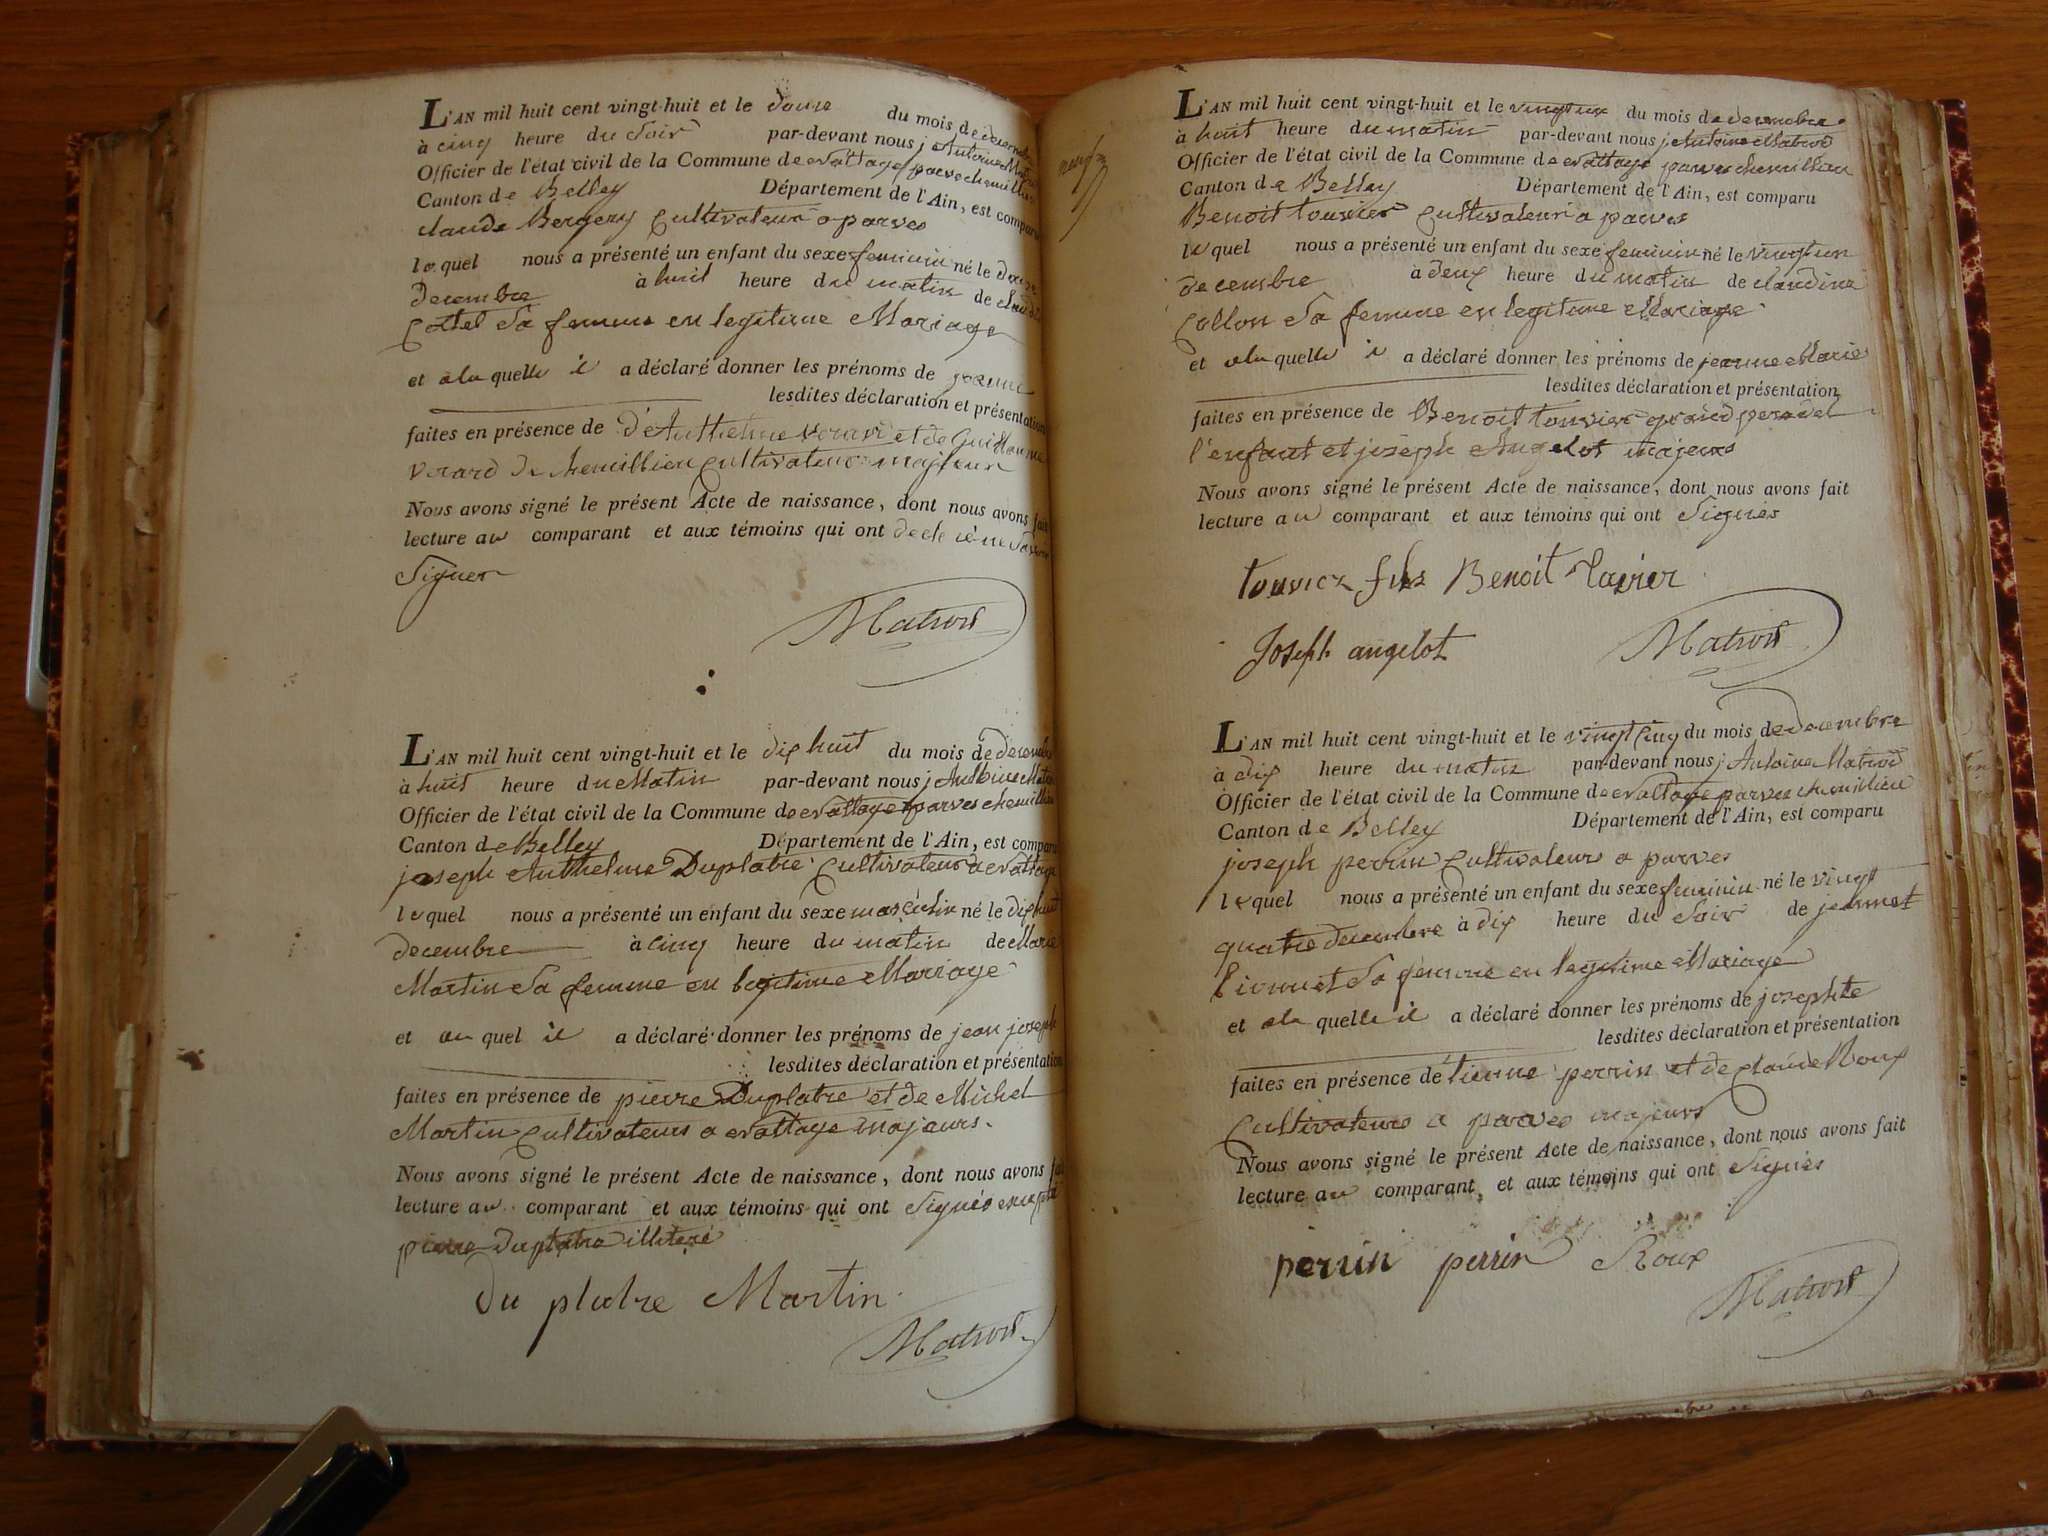 L'AN mil huit cent vingt-huit et le douze du mois de decembre
à cinq heure du Soir par-devant nous j Antoine
Officier de l'état civil de la Commune de evattage parves chemillieu
Canton de Belley Département de l'Ain, est comparu
claude Bergery Cultivateur a parves
le quel nous a présenté un enfant du sexe feminin né le douze
decembre à huit heure du matin de
Cottel Sa femme en legitime Mariage
et ala quelle il a déclaré donner les prénoms de jeanne
lesdites déclaration et présentation
faites en présence de d'Anthelme verard et de Guillaume
verard de chemillieu Cultivateurs majeurs
Nous avons signé le présent Acte de naissance, dont nous avons fait
lecture au comparant et aux témoins qui ont
Signer
Matrod
L'AN mil huit cent vingt-huit et le dix huit du mois de decembre
à huit heure du Matin par-devant nous j Anthoine
Officier de l'état civil de la Commune de evattage parves chemillieu
Canton de Belley Département de l'Ain, est comparu
joseph Anthelme Duplatre Cultivateur a evattage
le quel nous a présenté un enfant du sexe masculin né le dix huit
decembre à cinq heure du matin de Marie
Martin Sa femme en legitime Mariage
et au quel il a déclaré donner les prénoms de jean joseph
lesdites déclaration et présentation
faites en présence de pierre Duplatre et de Michel
Martin Cultivateurs a evattage majeurs.
Nous avons signé le présent Acte de naissance, dont nous avons fait
lecture au comparant et aux témoins qui ont Signés
pierre duplatre illiteré
du platre Martin
Matrod
L'AN mil huit cent vingt-huit et le vingt un du mois de decembre
à huit heure du matin par-devant nous j Antoine Matrod
Officier de l'état civil de la Commune de evattage parves chemillieu
Canton de Belley Département de l'Ain, est comparu
Benoit touvier Cultivateur a parves
le quel nous a présenté un enfant du sexe feminin né le vingt un
decembre à deux heure du matin de claudine
Collon Sa femme en legitime Mariage
et ala quelle il a déclaré donner les prénoms de jeanne Marie
lesdites déclaration et présentation
faites en présence de Benoit touvier grand pere del
l'enfant et joseph Angelot majeurs
Nous avons signé le présent Acte de naissance, dont nous avons fait
lecture au comparant et aux témoins qui ont Signés
touvier fils Benoit Tavier
Joseph angelot Matrod
L'AN mil huit cent vingt-huit et le vingt Cinq du mois de decembre
à dix heure du matin par-devant nous j Antoine Matrod
Officier de l'état civil de la Commune de evattage parves chemillieu
Canton de Belley Département de l'Ain, est comparu
joseph perrin Cultivateur a parves
le quel nous a présenté un enfant du sexe feminin né le vingt
quatre decembre à dix heure du Soir de jeannet
lionnet Sa femme en legitime Mariage
et ala quelle il a déclaré donner les prénoms de josephte
lesdites déclaration et présentation
faites en présence d'étienne perrin et de claude Roux
Cultivateurs a parves majeurs
Nous avons signé le présent Acte de naissance, dont nous avons fait
lecture au comparant et aux témoins qui ont Signés
perrin perrin Roux
Matrod